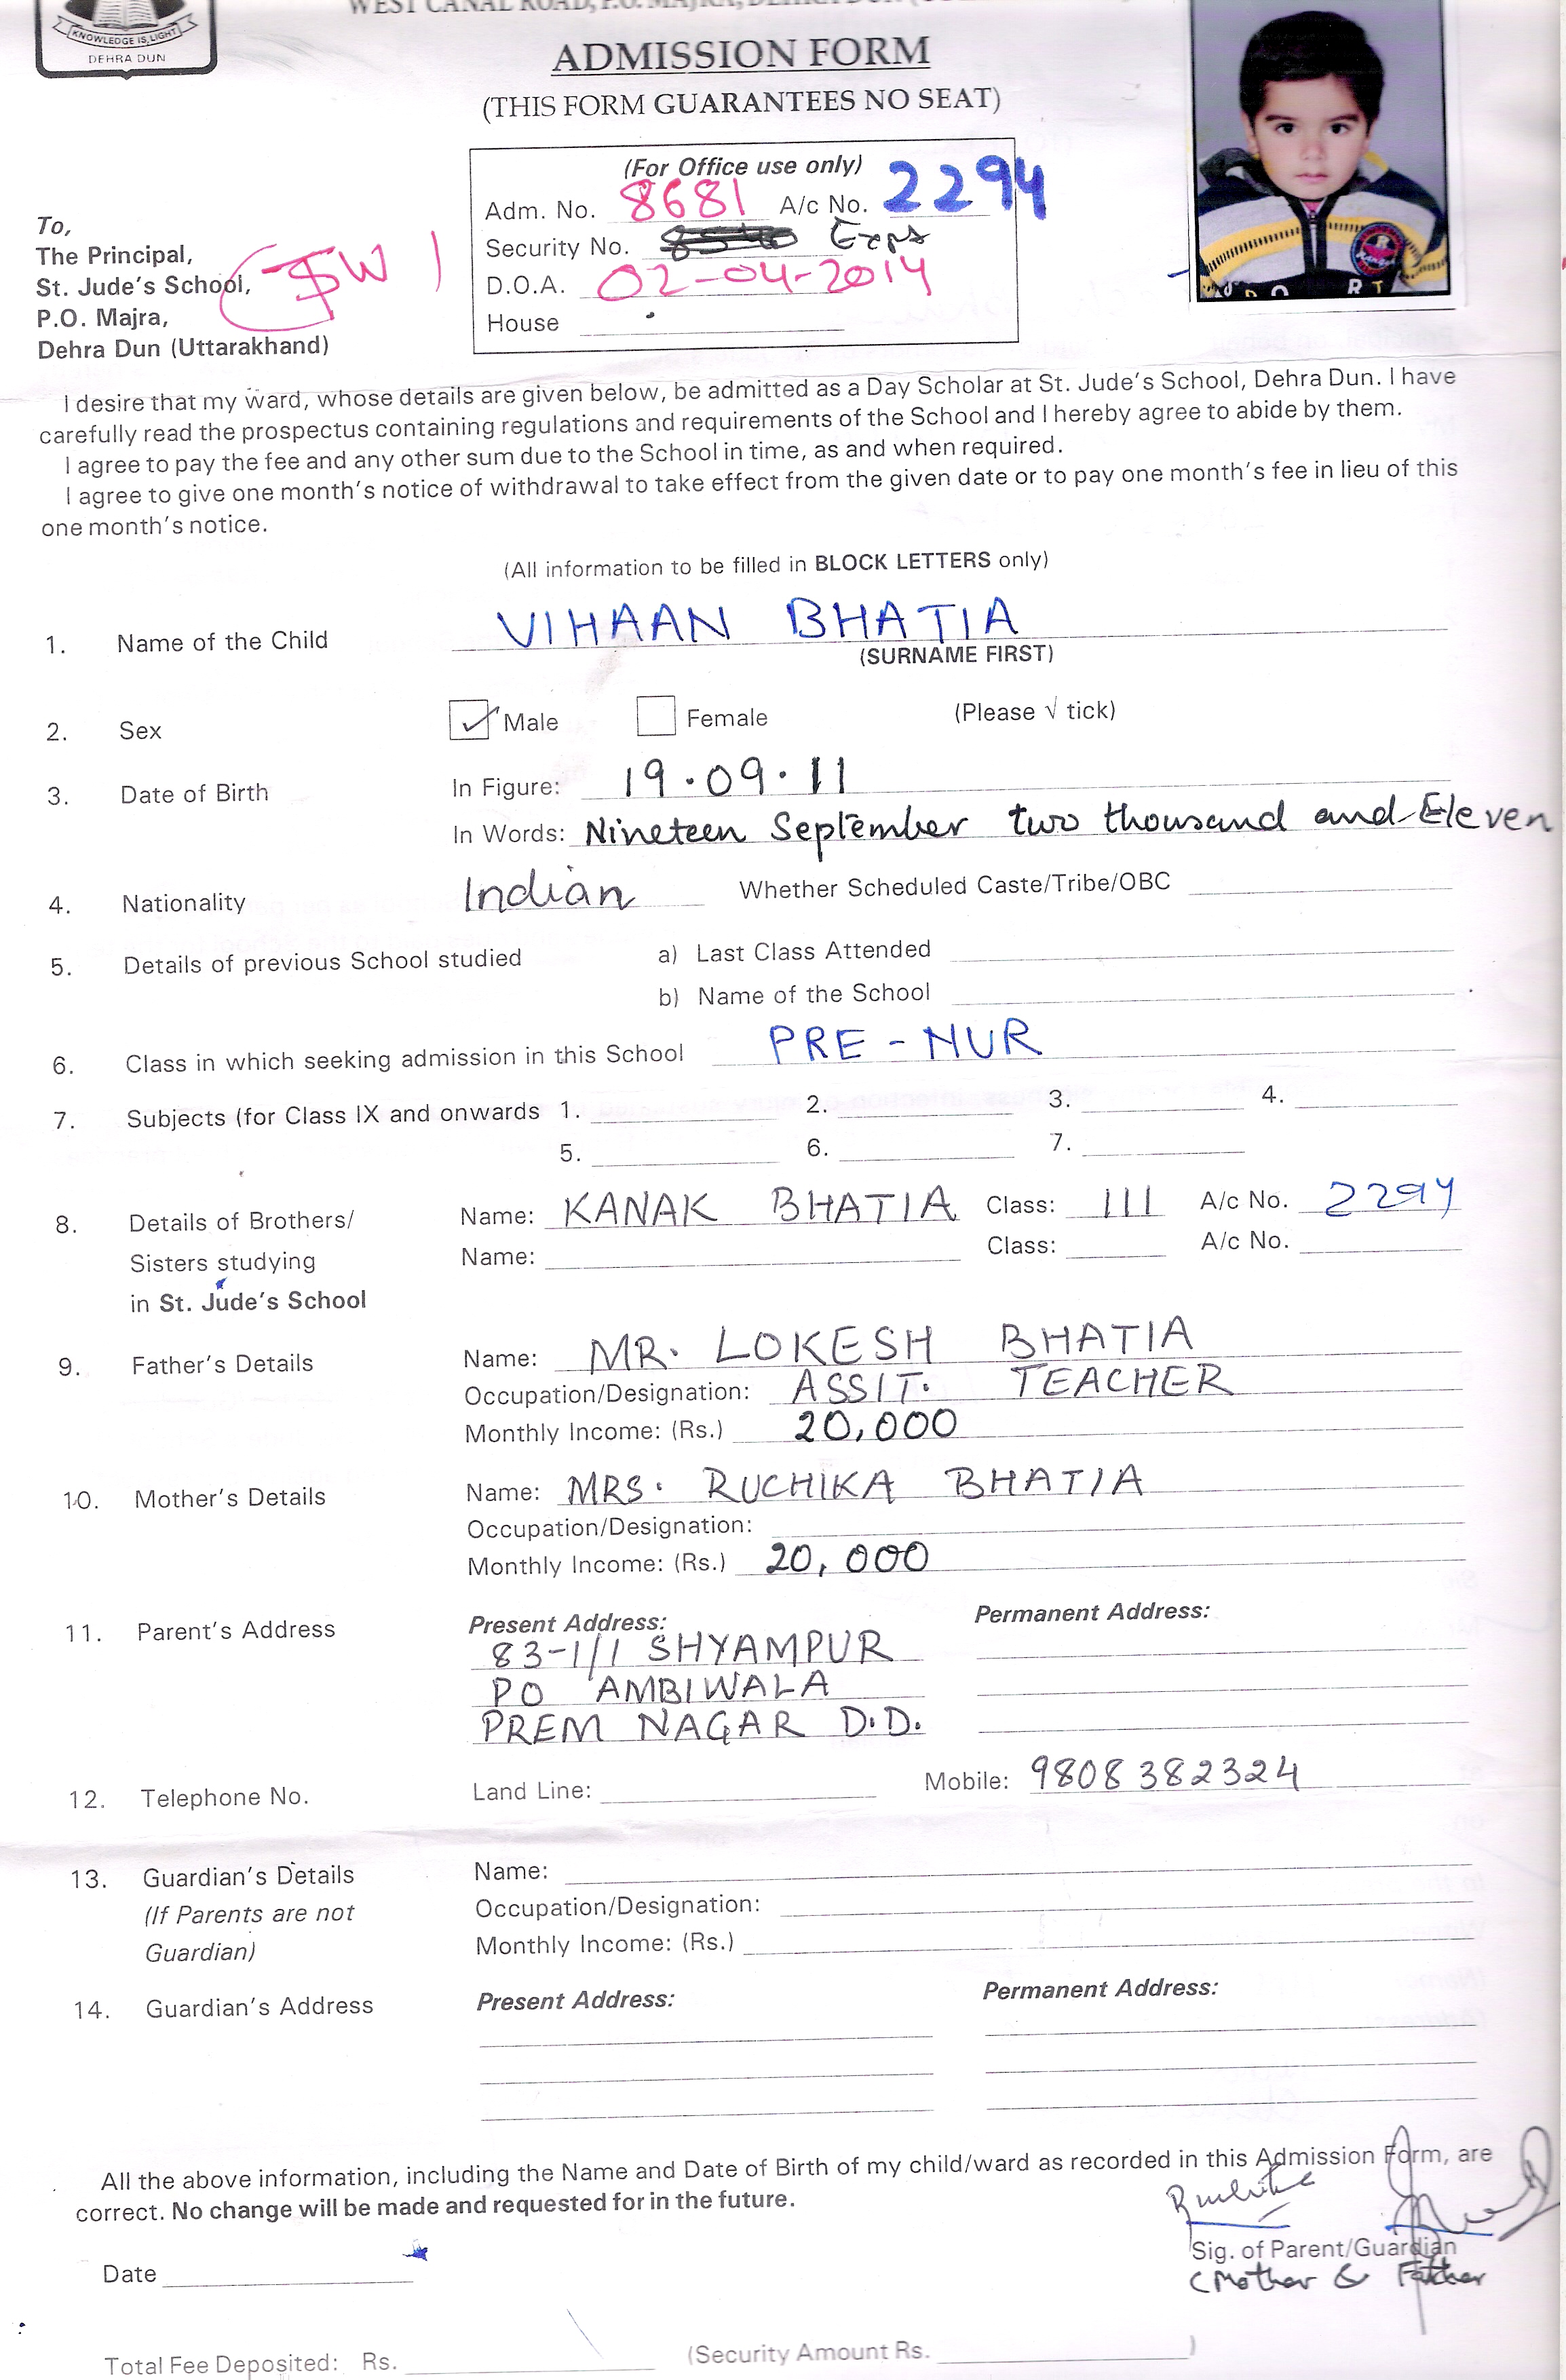 WEST CANAL ROAD, P.O. MAJRA, DEHRA DUN
KNOWLEDGE IS LIGHT
DEHRA DUN
ADMISSION FORM
(THIS FORM GUARANTEES NO SEAT)
(For Office use only)
Adm. No. 8681 A/c No. 2294
Security No.
D.O.A. 02-04-2014
House
To,
The Principal,
St. Jude's School,
P.O. Majra,
Dehra Dun (Uttarakhand)
I desire that my ward, whose details are given below, be admitted as a Day Scholar at St. Jude's School, Dehra Dun. I have
carefully read the prospectus containing regulations and requirements of the School and I hereby agree to abide by them.
I agree to pay the fee and any other sum due to the School in time, as and when required.
I agree to give one month's notice of withdrawal to take effect from the given date or to pay one month's fee in lieu of this
one month's notice.
(All information to be filled in BLOCK LETTERS only)
1. Name of the Child VIHAAN BHATIA
(SURNAME FIRST)
2. Sex Male Female (Please √ tick)
3. Date of Birth In Figure: 19.09.11
In Words: Nineteen September two thousand and Eleven
4. Nationality Indian Whether Scheduled Caste/Tribe/OBC
5. Details of previous School studied a) Last Class Attended
b) Name of the School
6. Class in which seeking admission in this School PRE - NUR
7. Subjects (for Class IX and onwards 1. 2. 3. 4.
5. 6. 7.
8. Details of Brothers/ Name: KANAK BHATIA Class: III A/c No. 2294
Sisters studying Name: Class: A/c No.
in St. Jude's School
9. Father's Details Name: MR. LOKESH BHATIA
Occupation/Designation: ASSIT. TEACHER
Monthly Income: (Rs.) 20,000
10. Mother's Details Name: MRS. RUCHIKA BHATIA
Occupation/Designation:
Monthly Income: (Rs.) 20,000
11. Parent's Address Present Address: Permanent Address:
83-1/1 SHYAMPUR
PO AMBIWALA
PREM NAGAR D.D.
12. Telephone No. Land Line: Mobile: 9808382324
13. Guardian's Details Name:
(If Parents are not Occupation/Designation:
Guardian) Monthly Income: (Rs.)
14. Guardian's Address Present Address: Permanent Address:
All the above information, including the Name and Date of Birth of my child/ward as recorded in this Admission Form, are
correct. No change will be made and requested for in the future.
Sig. of Parent/Guardian
(Mother & Father
Date
Total Fee Deposited: Rs. (Security Amount Rs. )